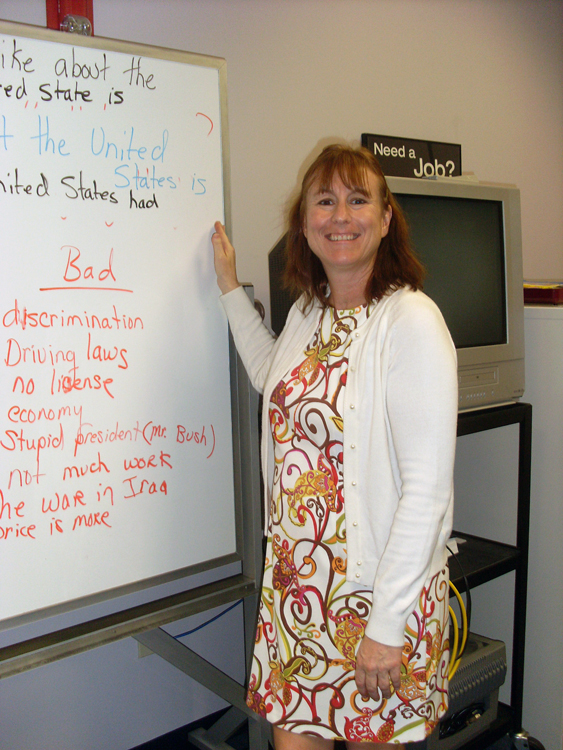 ike about the
ed State is
t the United
States is
nited States had
Bad
discrimination
Driving laws
no license
economy
Stupid president (Mr. Bush)
not much work
he war in Iraq
price is more
Need a
Job?